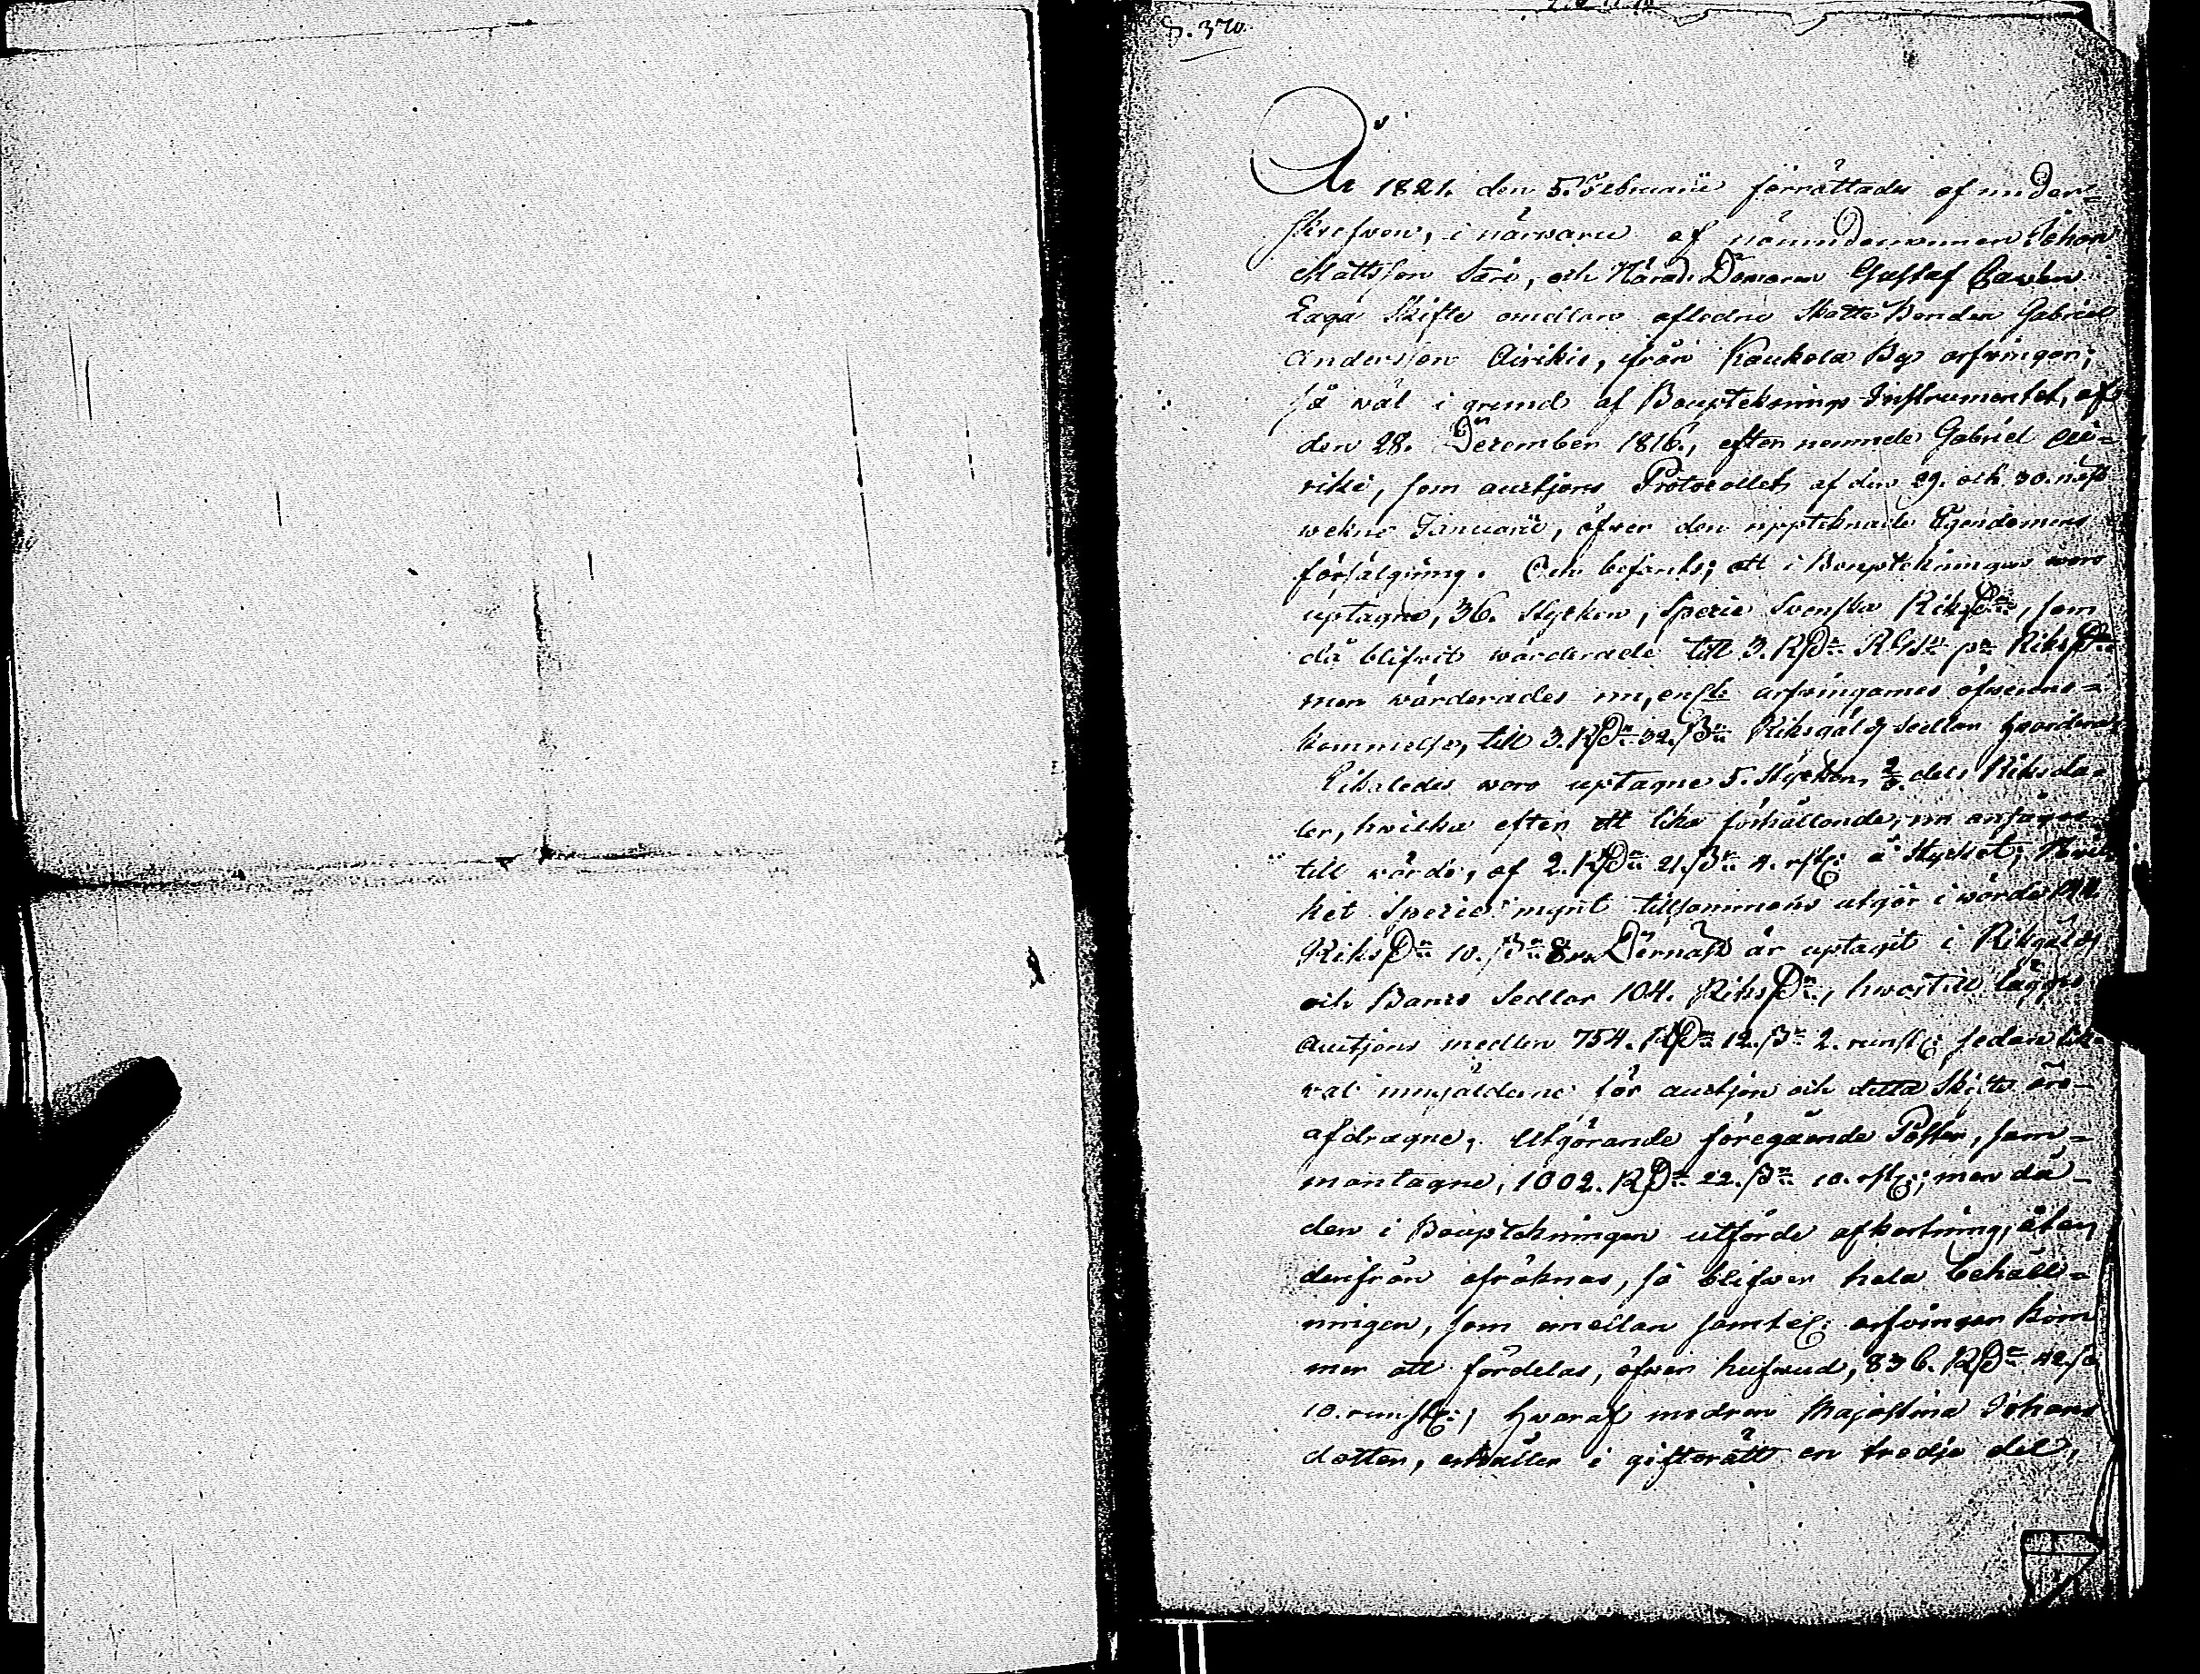 S. 370.
År 1821. den 5. Februarii förrättades af under-
skrefwen, i närwaru af nämndemannen Johan
Mattsson Säri, och Härads Domaren Gustaf
Laga Skifte emellan afledne Skatte Bonden Gabriel
Andersson Airikis, ifrån Kaukola By arfwingar;
så wäl i grund af Boupteknings Instrumentet, af
den 28. Decemben 1816., efter nämnde Gabriel Ai-
rikis, som auctjons Protocollet, af den 29. och 30. näst
wekne Januarii, öfwer den uppteknade Egendomens
försälgning. Och befants; att i Bouptekningen woro
uptagne, 36. Stycken, Specie Svenska Riksd:r, som
då blifwit wärderade till 3. Rd:r RGS:r pr Riksd:r
men wärderades nu, enl: arfwingarnes öfwerens-
kommelse, till 3. Rd:r 32. s:r Riksgäld sedlar hwardera,
Likaledes woro uptagne 5. Stycken, 2/3 dels Riksda-
ler, hwilka efter ett lika förhållande, nu ansågos
till wärde, af 2. Rd:r 21. s:r 4. rst: á Stycket; Hwil-
ket Specie mynt tillsammans utgör i wärde 144.
Riksd:r 10. s:r 8 rst Dernäst är uptagit i Riksgälds
och Banco Sedlar 104. Riksd:r, hwartill lägges
Auctjons medlen 754. Rd:r 12. s:r 2. runst: sedan lik-
väl omgälderne för auctjon och detta Skifte äro
afdragne; Utgörande föregående Poster, sam-
mantagne, 1002. Rd:r 22. s:r 10. rst:; men då
den i Bouptekningen utförde afkortning, åter
derifrån afräknas, så blifwer hela behåll-
ningen, som emellan samtel: arfwingar kom
mer att fördelas, öfwer hufwud, 836. Rd:r 42. s:
10. runst:; hwaraf modren Majastina Johans
dotter, erhåller i giftorätt en tredje del,